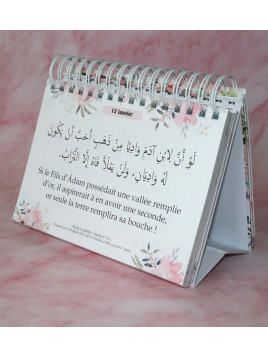 12 janvier
لَوْ أَنَّ لِابْنِ آدَمَ وَادِيًا مِنْ ذَهَبٍ أَحَبَّ أَنْ يَكُونَ
لَهُ وَادِيَانِ، وَلَنْ يَمْلَأَ فَاهُ إِلَّا التُّرَابُ.
Si le Fils d'Adam possédait une vallée remplie
d'or, il aspirerait à en avoir une seconde,
or seule la terre remplira sa bouche !